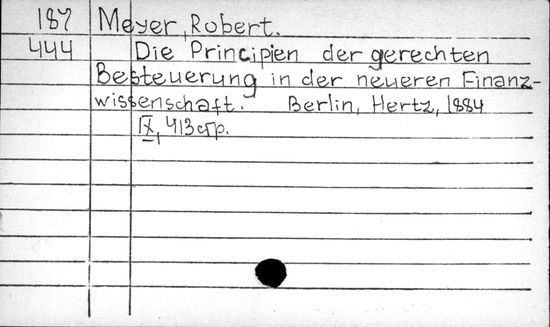 187 Meyer, Robert.
444 Die Principien der gerechten
Besteuerung in der neueren Finanz-
wissenschaft. Berlin, Hertz, 1884
IX, 413 стр.